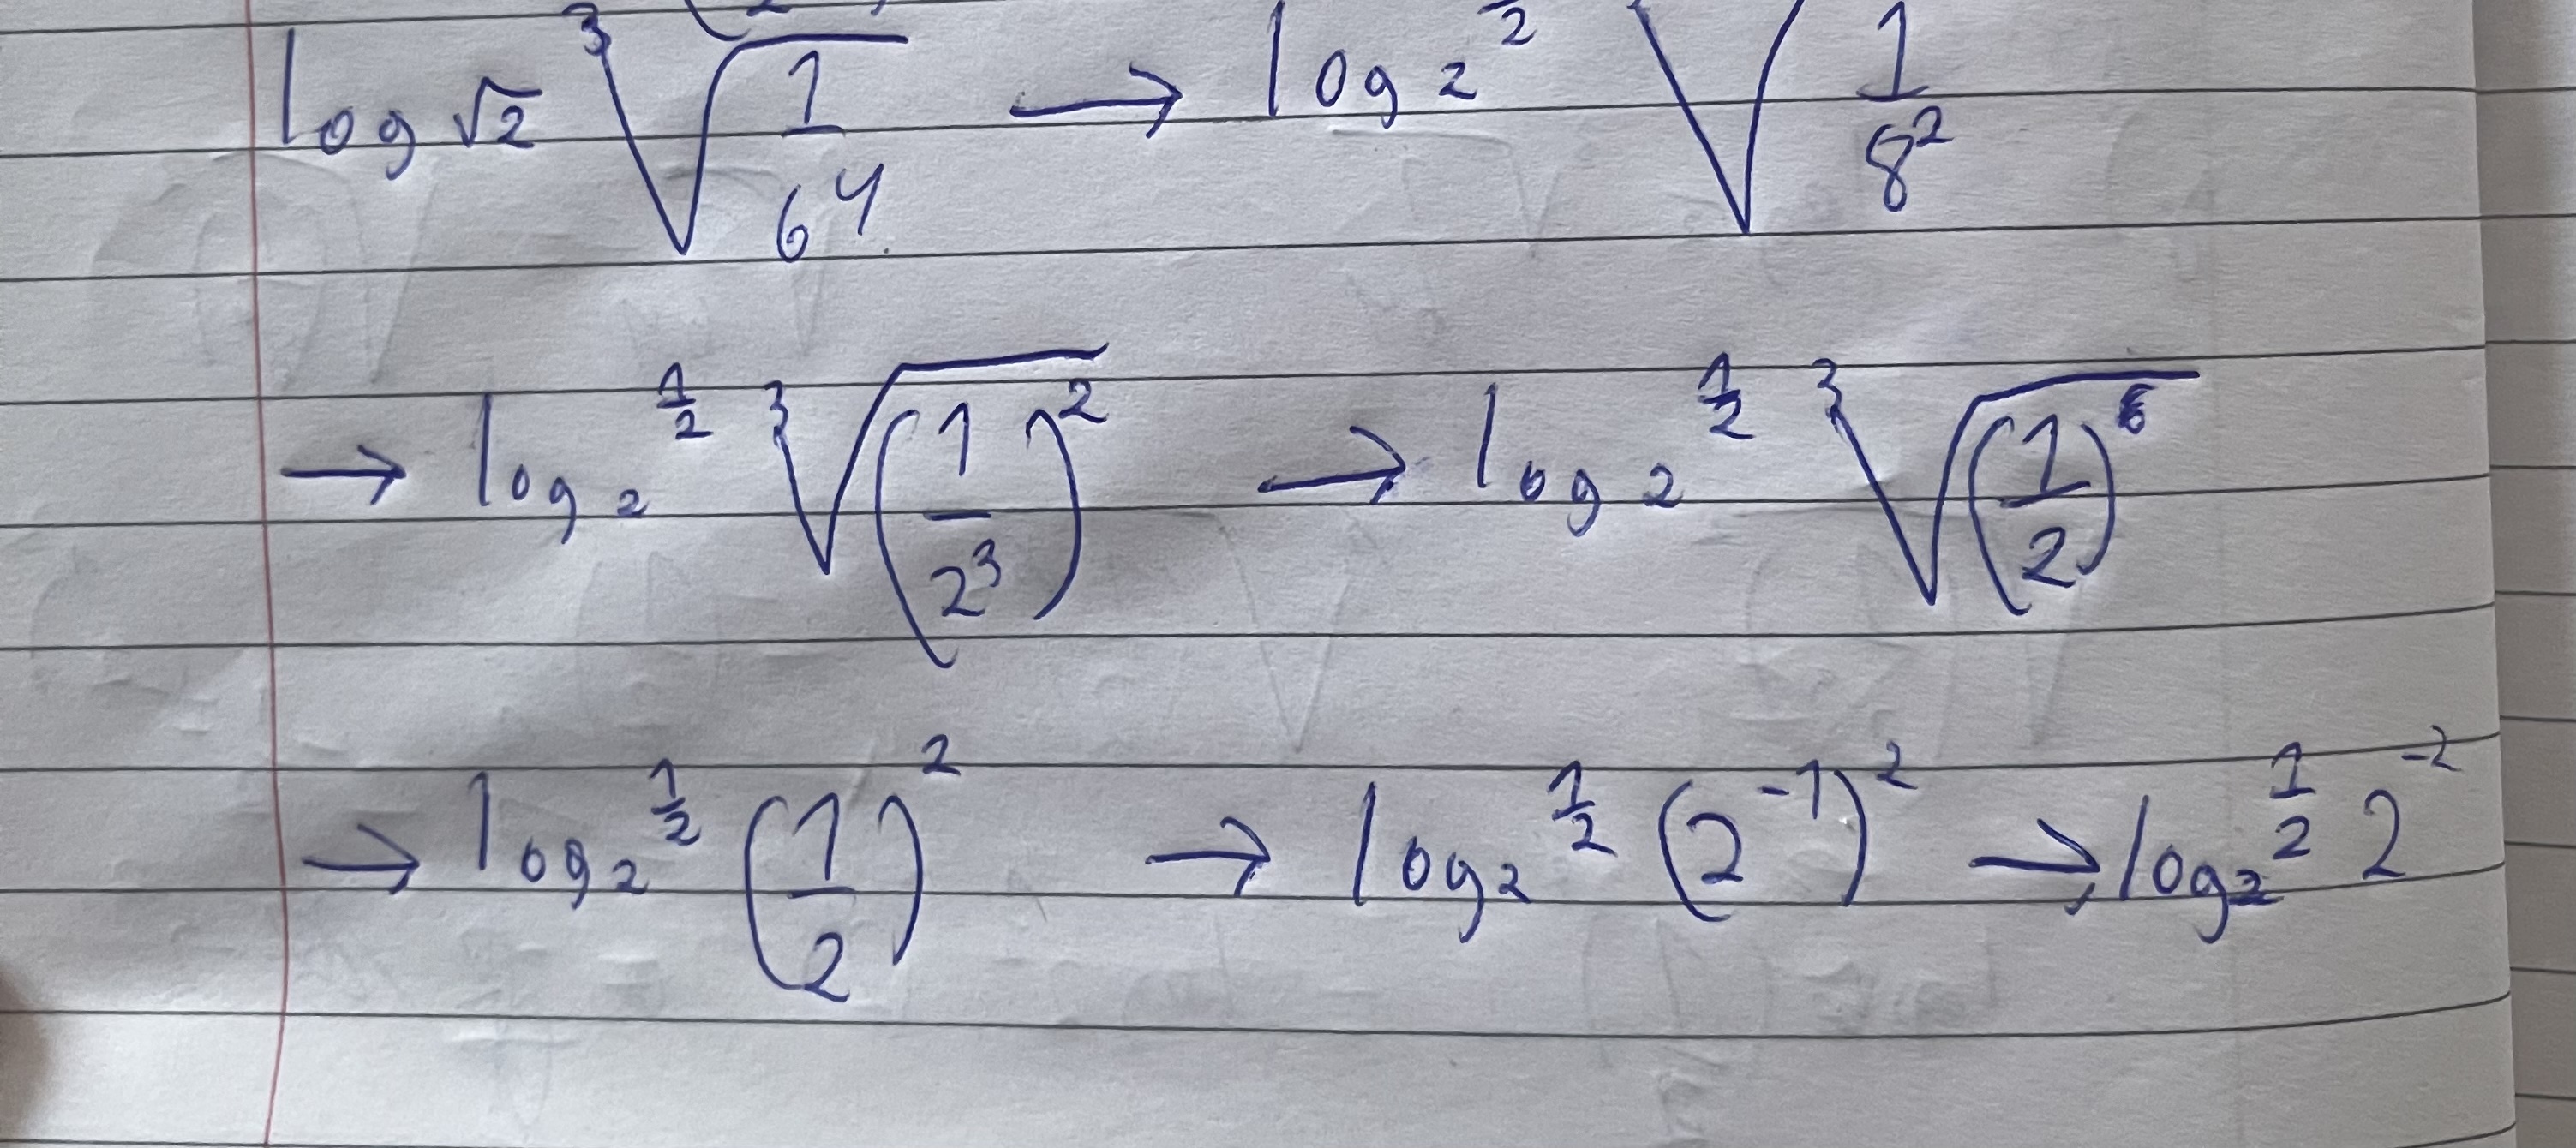 log √2 ∛(1/64) → log 2^(1/2) √(1/8²)
→ log₂^(1/2) ∛((1/2³)²) → log₂^(1/2) ∛((1/2)⁶)
→ log₂^(1/2) (1/2)² → log₂^(1/2) (2⁻¹)² → log₂^(1/2) 2⁻²